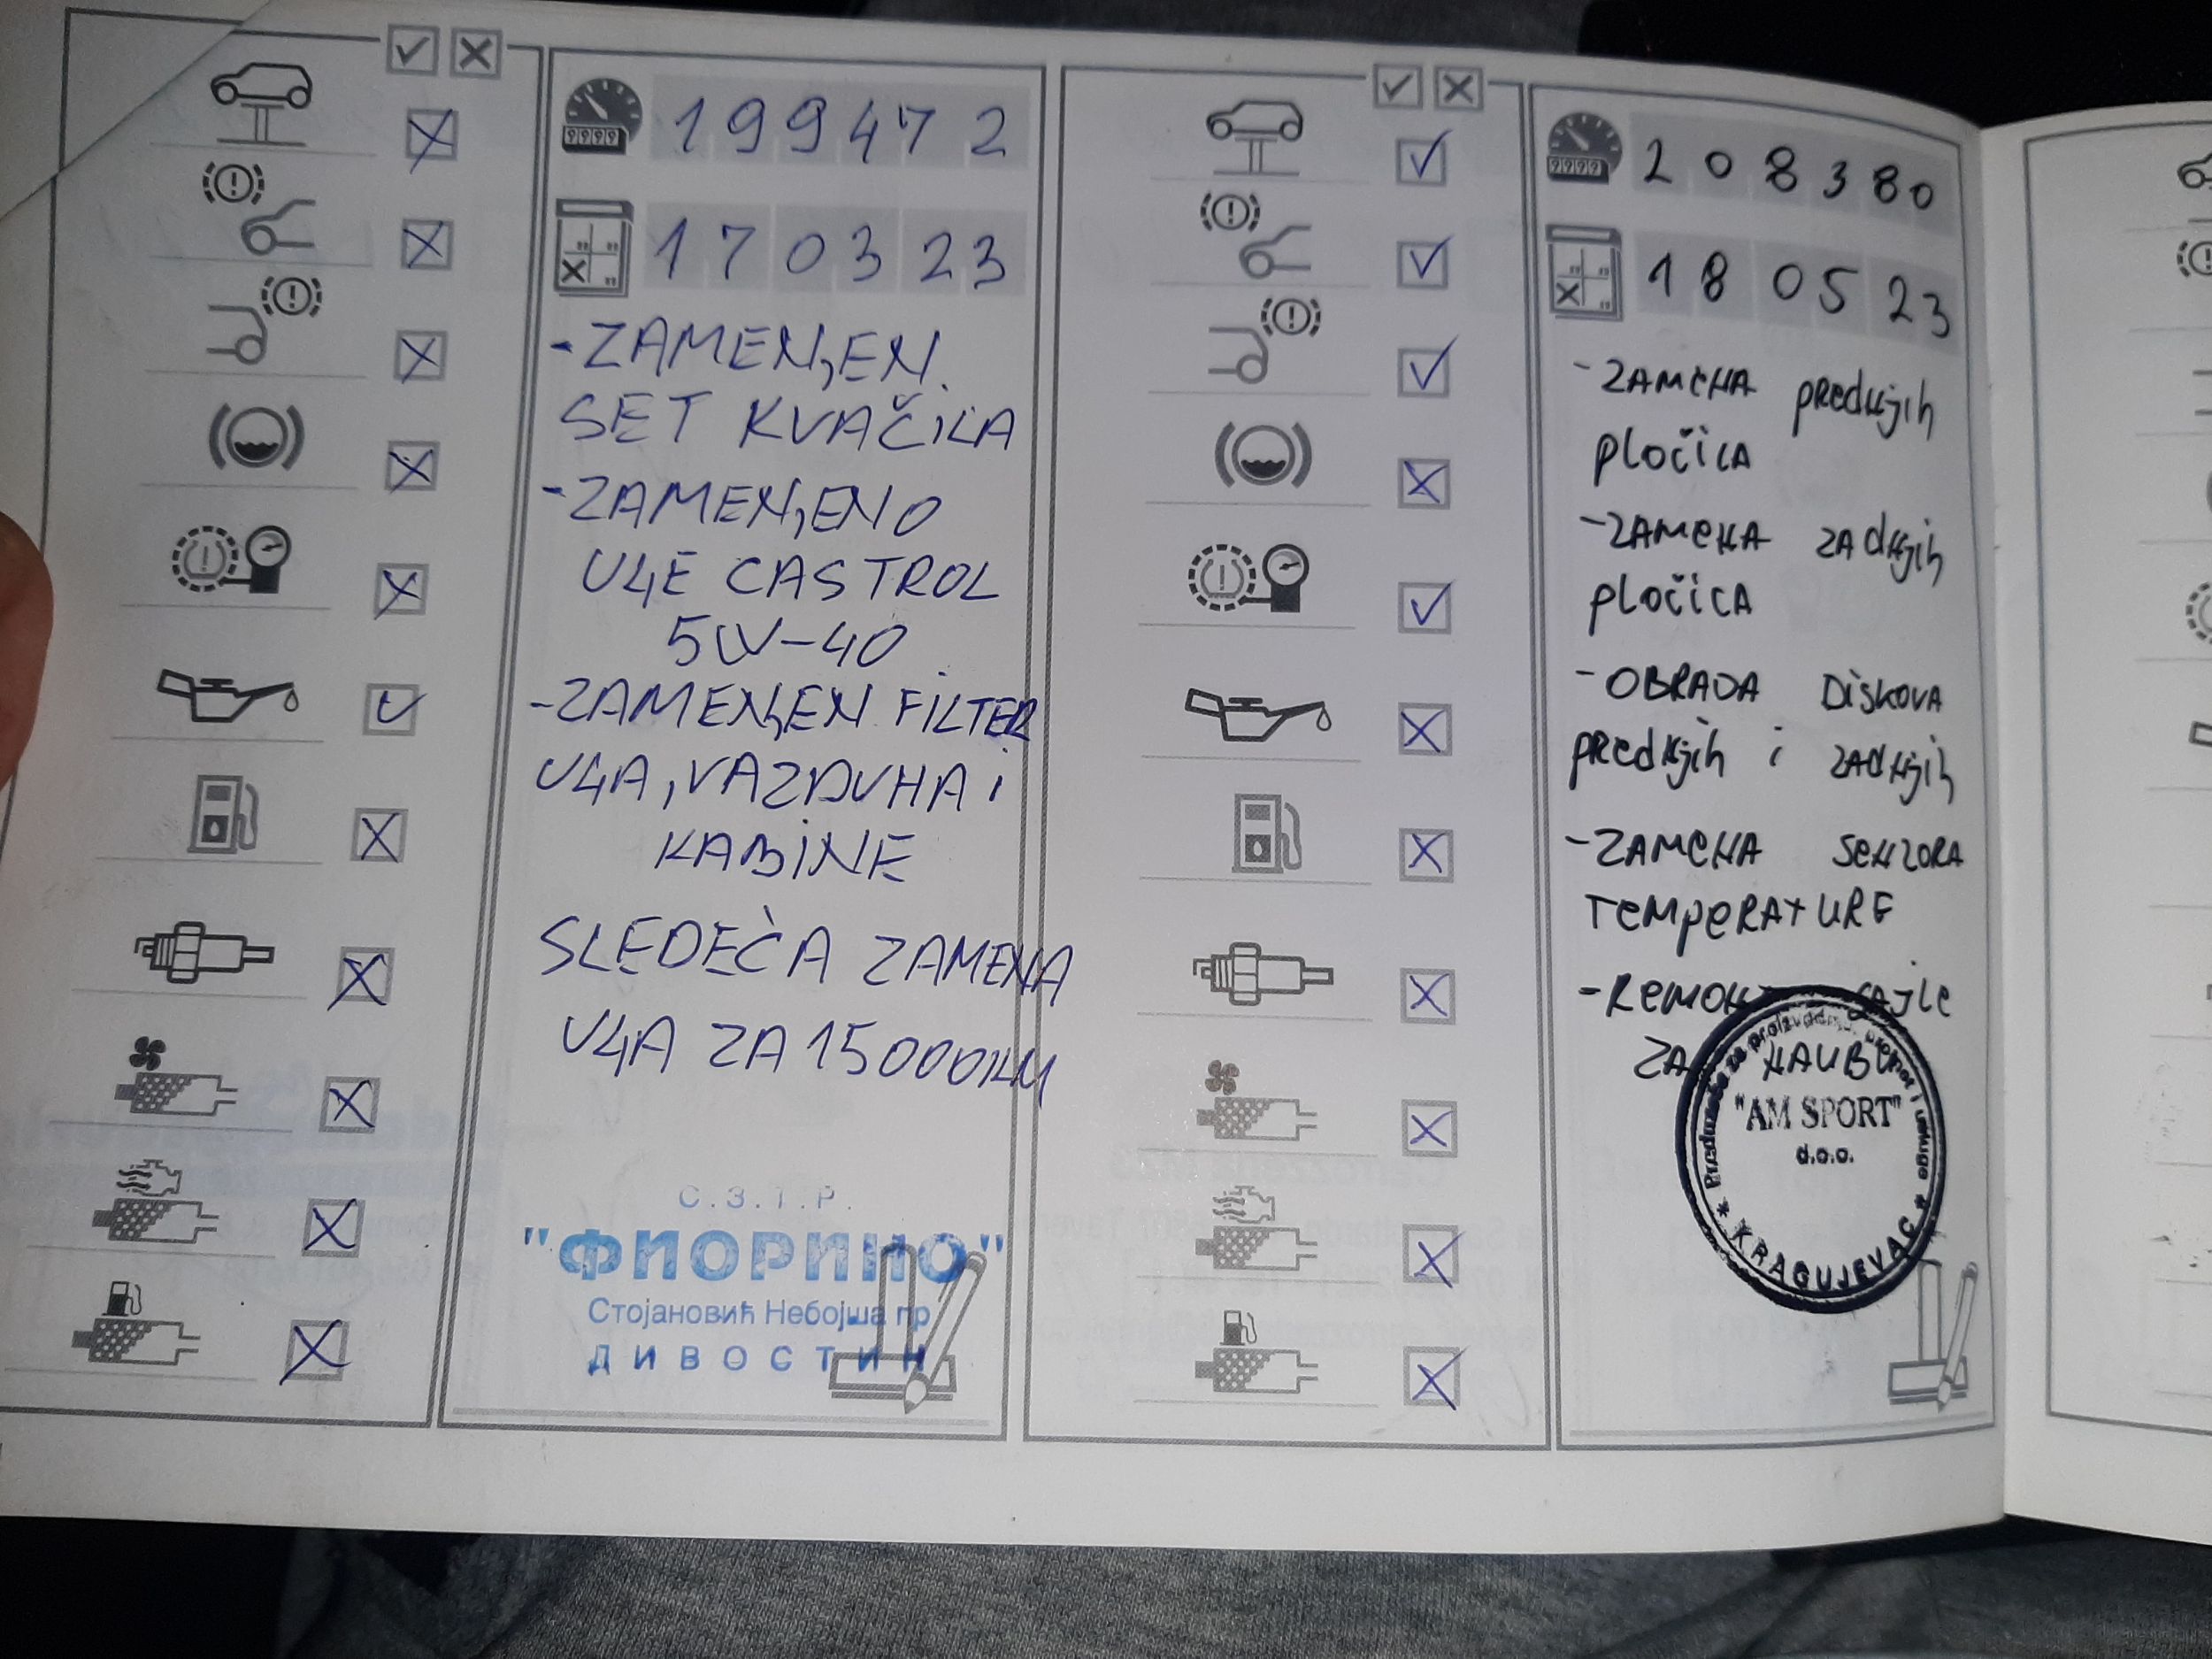 199472
170323
-ZAMENJEN
SET KVAČILA
-ZAMENJENO
ULJE CASTROL
5W-40
-ZAMENJEN FILTER
ULJA, VAZDUHA i
KABINE
SLEDEĆA ZAMENA
ULJA ZA 15000KM
С.З.Т.Р.
"ФИОРИНО"
Стојановић Небојша пр
ДИВОСТИН
208380
180523
-ZAMENA prednjih
pločica
-ZAMENA zadnjih
pločica
-OBRADA DISKOVA
prednjih i zadnjih
-ZAMENA SENZORA
TEMPERATURE
-REMONT sajle
ZA HAUBU
Preduzeće za proizvodnju, promet i usluge
"AM SPORT"
d.o.o.
KRAGUJEVAC